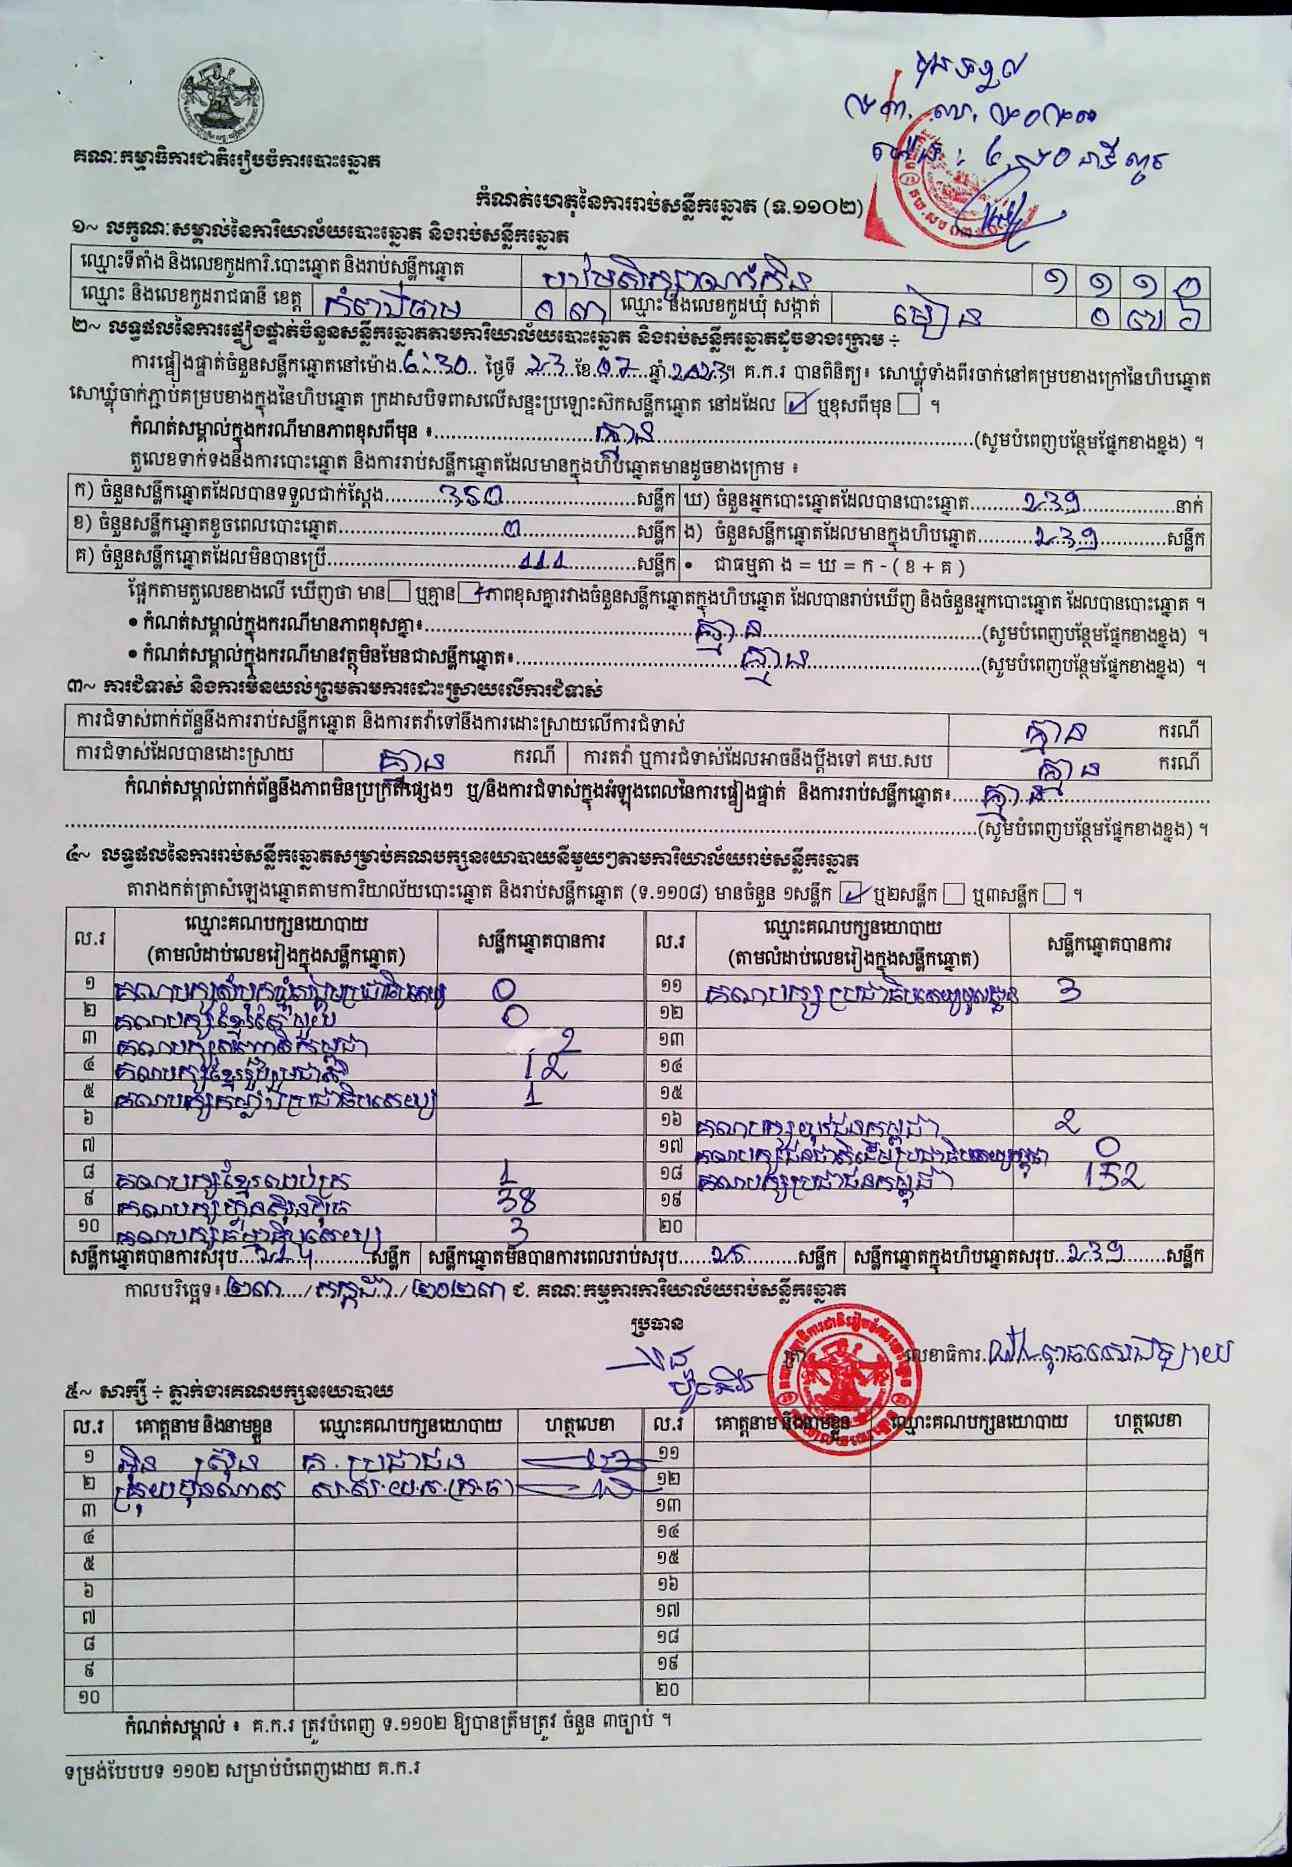 គណៈកម្មាធិការជាតិរៀបចំការបោះឆ្នោត
កំណត់ហេតុនៃការរាប់សន្លឹកឆ្នោត (ទ.១១០២)
១~ លក្ខណៈសម្គាល់នៃការិយាល័យបោះឆ្នោត និងរាប់សន្លឹកឆ្នោត
ឈ្មោះទីតាំង និងលេខកូដការិ.បោះឆ្នោត និងរាប់សន្លឹកឆ្នោត ១ ១ ១ ០
ឈ្មោះ និងលេខកូដរាជធានី ខេត្ត កំពង់ចាម ០ ៣ ឈ្មោះ និងលេខកូដឃុំ សង្កាត់ មៀន ០ ៧ ៦
២~ លទ្ធផលនៃការផ្ទៀងផ្ទាត់ចំនួនសន្លឹកឆ្នោតតាមការិយាល័យបោះឆ្នោត និងរាប់សន្លឹកឆ្នោតដូចខាងក្រោម ÷
ការផ្ទៀងផ្ទាត់ចំនួនសន្លឹកឆ្នោតនៅម៉ោង 6:30 ថ្ងៃទី 23 ខែ 07 ឆ្នាំ 2023។ គ.ក.រ បានពិនិត្យ៖ សោឃ្លុំទាំងពីរចាក់នៅគម្របខាងក្រៅនៃហិបឆ្នោត
សោឃ្លុំចាក់ភ្ជាប់គម្របខាងក្នុងនៃហិបឆ្នោត ក្រដាសបិទពាសលើសន្ទះប្រឡោះស៊កសន្លឹកឆ្នោត នៅដដែល ឬខុសពីមុន ។
កំណត់សម្គាល់ក្នុងករណីមានភាពខុសពីមុន ៖ គ្មាន (សូមបំពេញបន្ថែមផ្នែកខាងខ្នង) ។
តួលេខទាក់ទងនឹងការបោះឆ្នោត និងការរាប់សន្លឹកឆ្នោតដែលមានក្នុងហិបឆ្នោតមានដូចខាងក្រោម ៖
ក) ចំនួនសន្លឹកឆ្នោតដែលបានទទួលជាក់ស្តែង 350 សន្លឹក ឃ) ចំនួនអ្នកបោះឆ្នោតដែលបានបោះឆ្នោត 239 នាក់
ខ) ចំនួនសន្លឹកឆ្នោតខូចពេលបោះឆ្នោត 0 សន្លឹក ង) ចំនួនសន្លឹកឆ្នោតដែលមានក្នុងហិបឆ្នោត 239 សន្លឹក
គ) ចំនួនសន្លឹកឆ្នោតដែលមិនបានប្រើ 111 សន្លឹក • ជាធម្មតា ង = ឃ = ក - ( ខ + គ )
ផ្អែកតាមតួលេខខាងលើ ឃើញថា មាន ឬគ្មាន ភាពខុសគ្នារវាងចំនួនសន្លឹកឆ្នោតក្នុងហិបឆ្នោត ដែលបានរាប់ឃើញ និងចំនួនអ្នកបោះឆ្នោត ដែលបានបោះឆ្នោត ។
• កំណត់សម្គាល់ក្នុងករណីមានភាពខុសគ្នា៖ គ្មាន (សូមបំពេញបន្ថែមផ្នែកខាងខ្នង) ។
• កំណត់សម្គាល់ក្នុងករណីមានវត្ថុមិនមែនជាសន្លឹកឆ្នោត៖ គ្មាន (សូមបំពេញបន្ថែមផ្នែកខាងខ្នង) ។
៣~ ការជំទាស់ និងការមិនយល់ព្រមតាមការដោះស្រាយលើការជំទាស់
ការជំទាស់ពាក់ព័ន្ធនឹងការរាប់សន្លឹកឆ្នោត និងការតវ៉ាទៅនឹងការដោះស្រាយលើការជំទាស់ គ្មាន ករណី
ការជំទាស់ដែលបានដោះស្រាយ គ្មាន ករណី ការតវ៉ា ឬការជំទាស់ដែលអាចនឹងប្តឹងទៅ គឃ.សប គ្មាន ករណី
កំណត់សម្គាល់ពាក់ព័ន្ធនឹងភាពមិនប្រក្រតីផ្សេងៗ ឬ/និងការជំទាស់ក្នុងអំឡុងពេលនៃការផ្ទៀងផ្ទាត់ និងការរាប់សន្លឹកឆ្នោត៖ គ្មាន
(សូមបំពេញបន្ថែមផ្នែកខាងខ្នង) ។
៤~ លទ្ធផលនៃការរាប់សន្លឹកឆ្នោតសម្រាប់គណបក្សនយោបាយនីមួយៗតាមការិយាល័យរាប់សន្លឹកឆ្នោត
តារាងកត់ត្រាសំឡេងឆ្នោតតាមការិយាល័យបោះឆ្នោត និងរាប់សន្លឹកឆ្នោត (ទ.១១០៨) មានចំនួន ១សន្លឹក ឬ២សន្លឹក ឬ៣សន្លឹក ។
ល.រ ឈ្មោះគណបក្សនយោបាយ (តាមលំដាប់លេខរៀងក្នុងសន្លឹកឆ្នោត) សន្លឹកឆ្នោតបានការ ល.រ ឈ្មោះគណបក្សនយោបាយ (តាមលំដាប់លេខរៀងក្នុងសន្លឹកឆ្នោត) សន្លឹកឆ្នោតបានការ
១ គណបក្សសំបុកឃ្មុំសង្គមប្រជាធិបតេយ្យ 0 ១១ គណបក្សប្រជាធិបតេយ្យមូលដ្ឋាន 3
២ គណបក្សខ្មែរតែមួយ 0 ១២
៣ គណបក្ស 2 ១៣
៤ គណបក្សខ្មែររួបរួមជាតិ 12 ១៤
៥ គណបក្សកម្លាំងប្រជាធិបតេយ្យ 1 ១៥
៦ ១៦ គណបក្សយុវជនកម្ពុជា 2
៧ ១៧ គណបក្សជនជាតិដើមប្រជាធិបតេយ្យកម្ពុជា 0
៨ គណបក្សខ្មែរឈប់ក្រ 1 ១៨ គណបក្សប្រជាជនកម្ពុជា 152
៩ គណបក្សហ៊្វុនស៊ិនប៉ិច 38 ១៩
១០ គណបក្សធម្មាធិបតេយ្យ 3 ២០
សន្លឹកឆ្នោតបានការសរុប 214 សន្លឹក សន្លឹកឆ្នោតមិនបានការពេលរាប់សរុប 25 សន្លឹក សន្លឹកឆ្នោតក្នុងហិបឆ្នោតសរុប 239 សន្លឹក
កាលបរិច្ឆេទ៖ ២៣ / កក្កដា / ២០២៣ ជ. គណៈកម្មការការិយាល័យរាប់សន្លឹកឆ្នោត
ប្រធាន
ត្រា លេខាធិការ
៥~ សាក្សី ÷ ភ្នាក់ងារគណបក្សនយោបាយ
ល.រ គោត្តនាម និងនាមខ្លួន ឈ្មោះគណបក្សនយោបាយ ហត្ថលេខា ល.រ គោត្តនាម និងនាមខ្លួន ឈ្មោះគណបក្សនយោបាយ ហត្ថលេខា
១ គ.ប្រជាជន ១១
២ ១២
៣ ១៣
៤ ១៤
៥ ១៥
៦ ១៦
៧ ១៧
៨ ១៨
៩ ១៩
១០ ២០
កំណត់សម្គាល់ ៖ គ.ក.រ ត្រូវបំពេញ ទ.១១០២ ឱ្យបានត្រឹមត្រូវ ចំនួន ៣ច្បាប់ ។
ទម្រង់បែបបទ ១១០២ សម្រាប់បំពេញដោយ គ.ក.រ